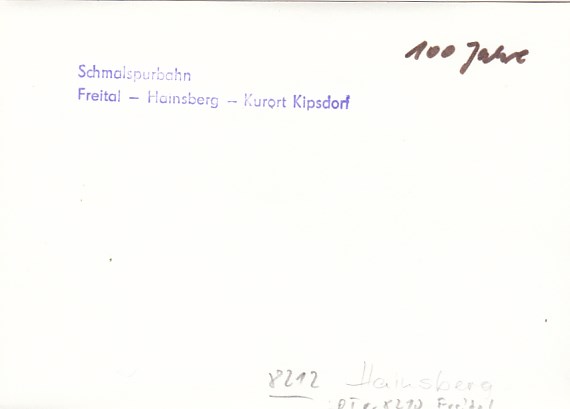 100 Jahre
Schmalspurbahn
Freital – Hainsberg – Kurort Kipsdorf
8212 Hainsberg
8210 Freital